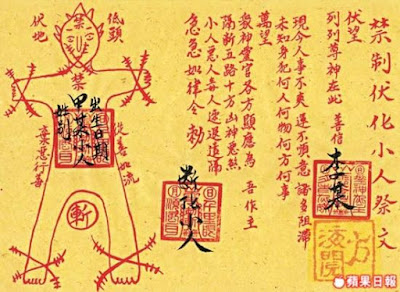 禁制伏化小人祭文
伏望
列列尊神在此 善信 李某
現今人事不爽 運不順意 諸多阻滯
未知身犯何人何物何方何事
萬望
教神靈官各方顯應為 吾作主
隔斬五路十方凶神惡煞
小人惡人毒人
急急如律令勅
敬化小人
低頭
伏地
禁
禁
出生日期
甲某小人
性別
從善如流
棄惡行善
斬
蘋果日報